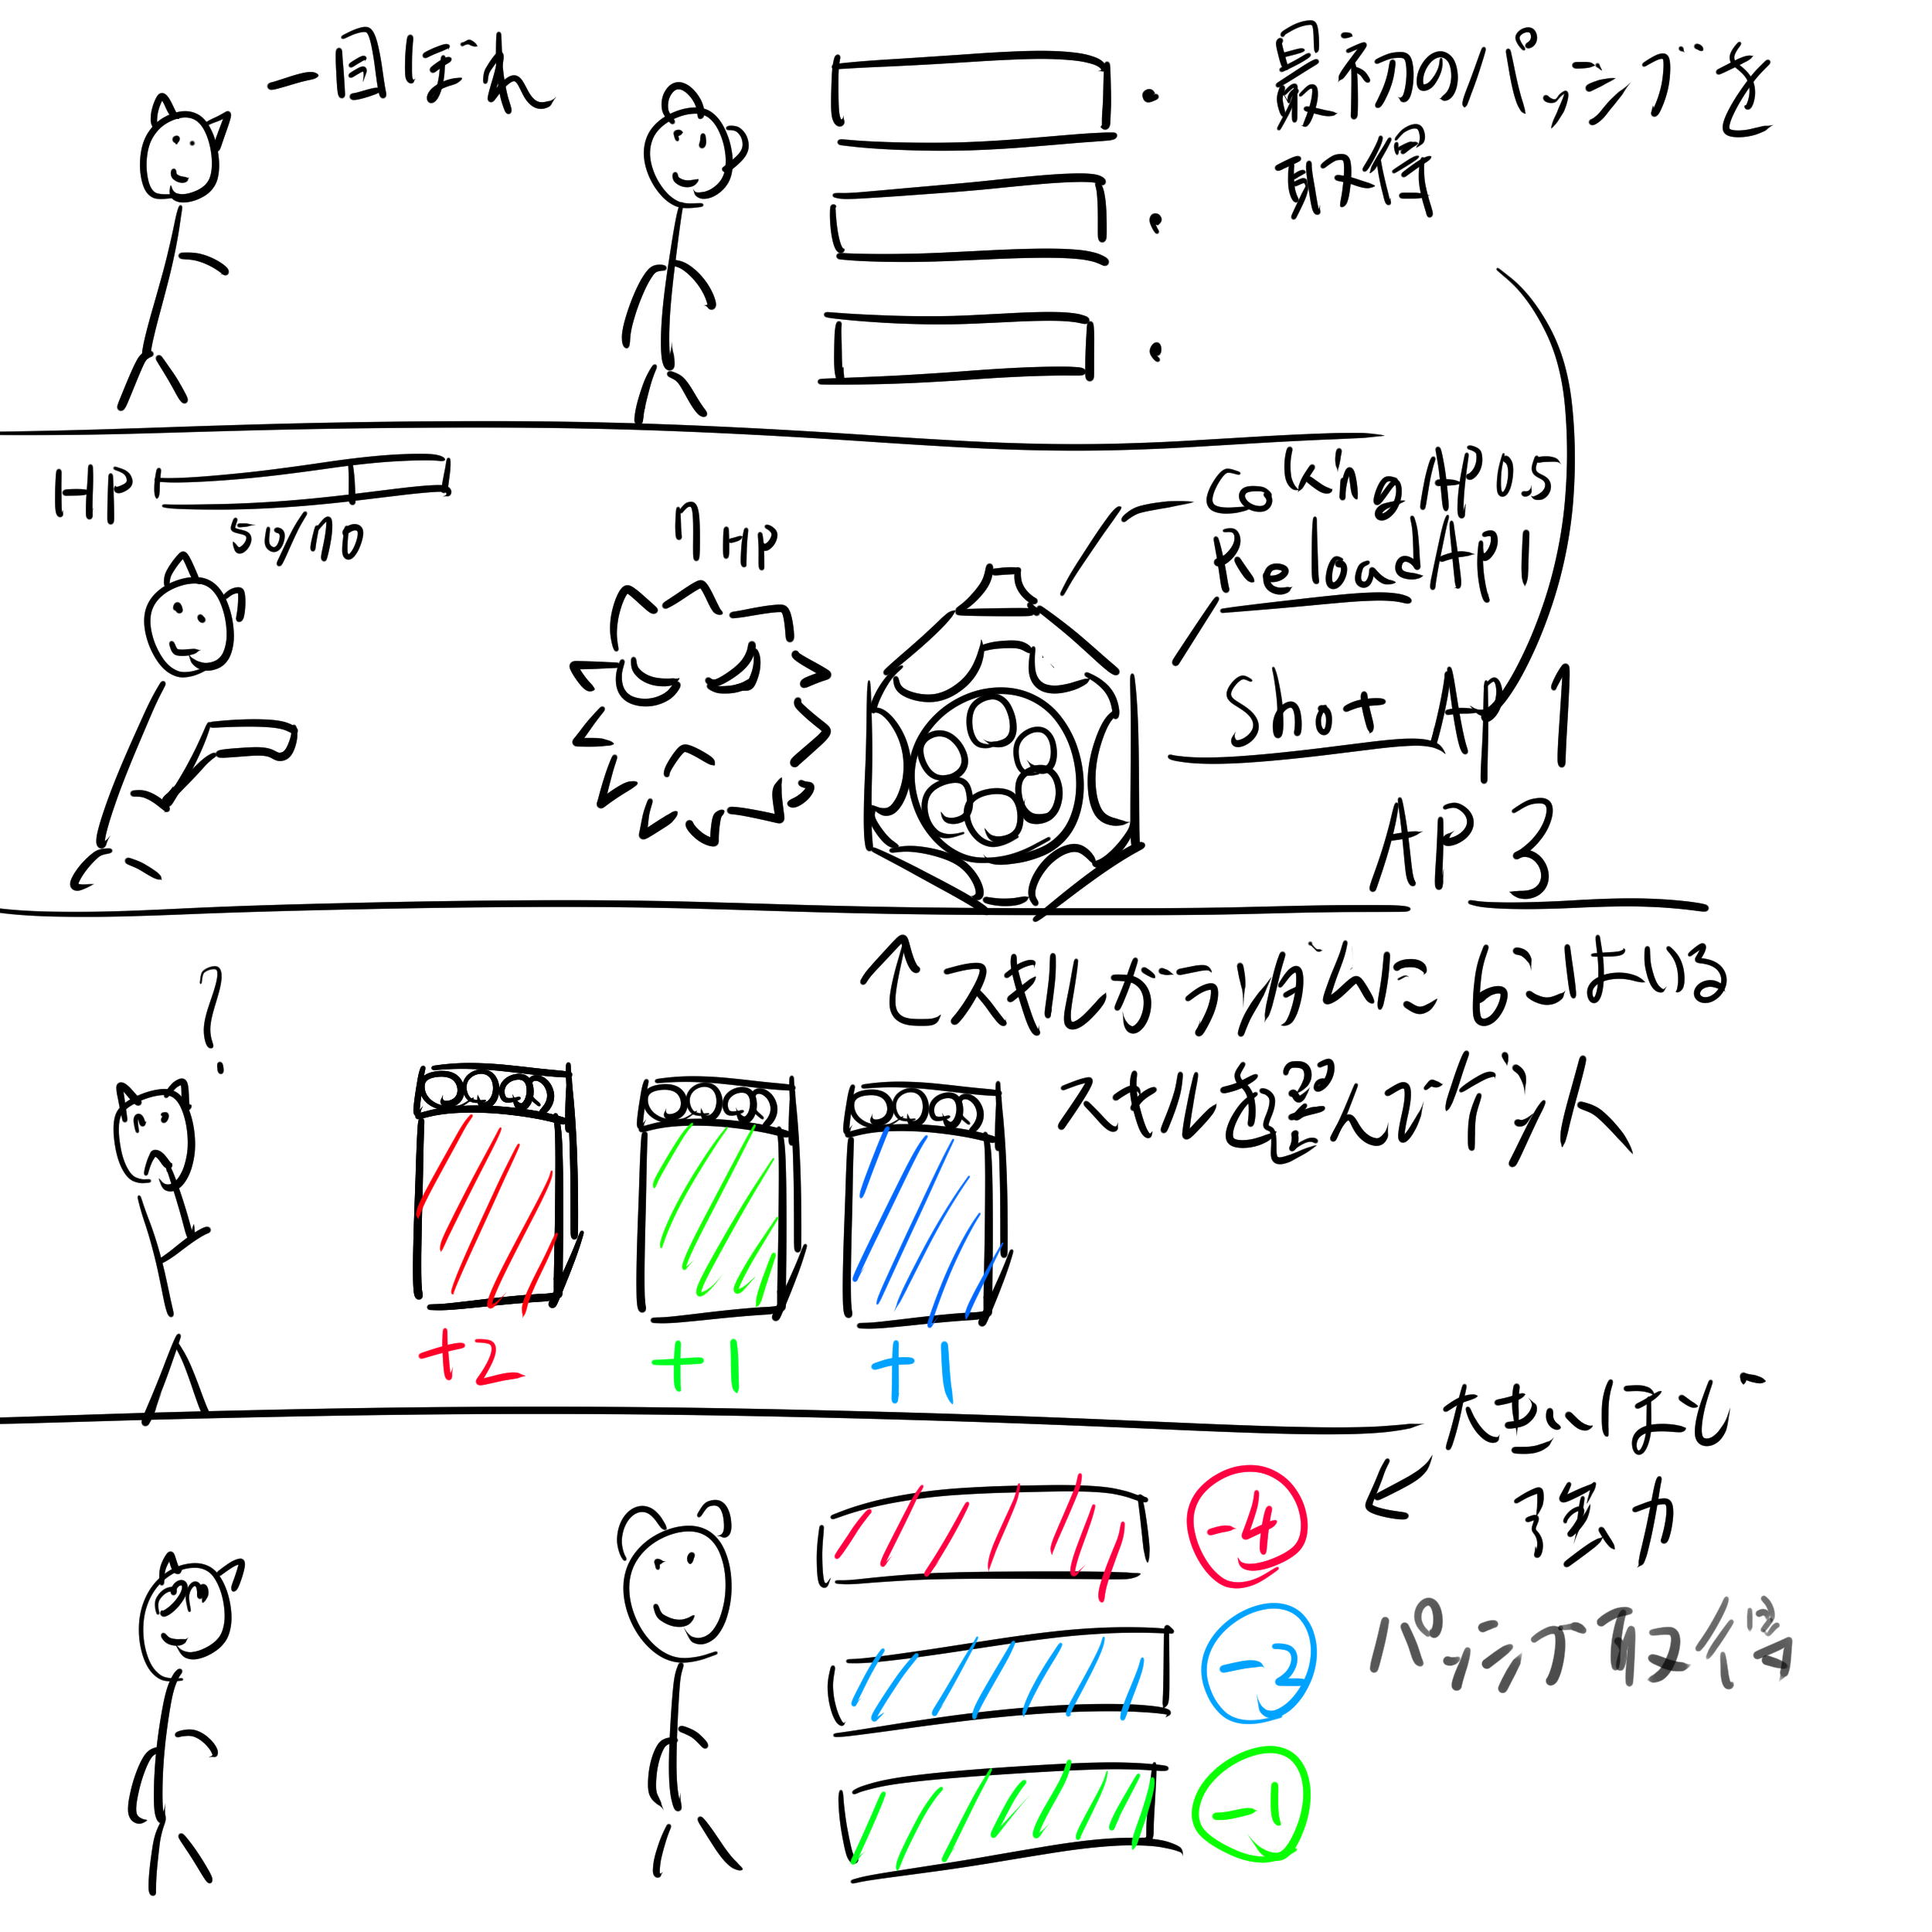 一回しれ
最初のパッシブを
取得
HP
50/70
70 HP
CockingAP0.5
ReloadAP1
ShotAP1
AP 3
↑スキルしかうがいに6にはいる
スキル選んで入ル
?
+2
+1
+1
大きいほど
強力
-4
-2
-1
パッシブ取得